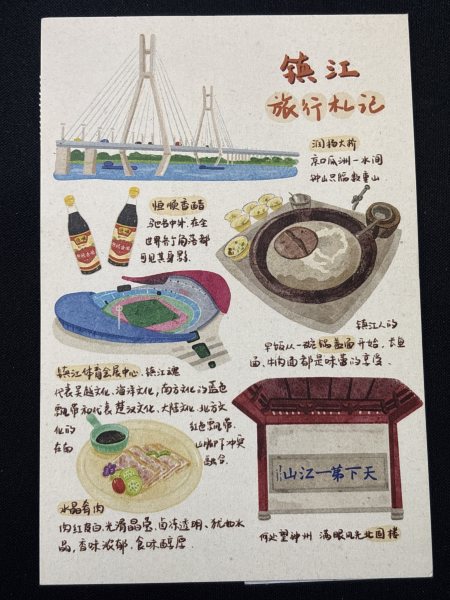 镇江
旅行札记
润扬大桥
京口瓜洲一水间
钟山只隔数重山
恒顺香醋
驰名中外,在全
世界各个角落都
可见其身影.
镇江人的
早饭从一碗锅盖面开始,长鱼
面、牛肉面都是味蕾的享受
镇江体育会展中心、镇江魂
代表吴越文化、海洋文化,南方文化的蓝色
飘带和代表楚汉文化、大陆文化、北方文
化的 红色飘带.
在南 山脚下冲突
融合.
水晶肴肉
肉红皮白.光滑晶莹.卤冻透明、犹如水
晶,香味浓郁.食味醇厚.
山江一第下天
何处望神州 满眼风光北固楼